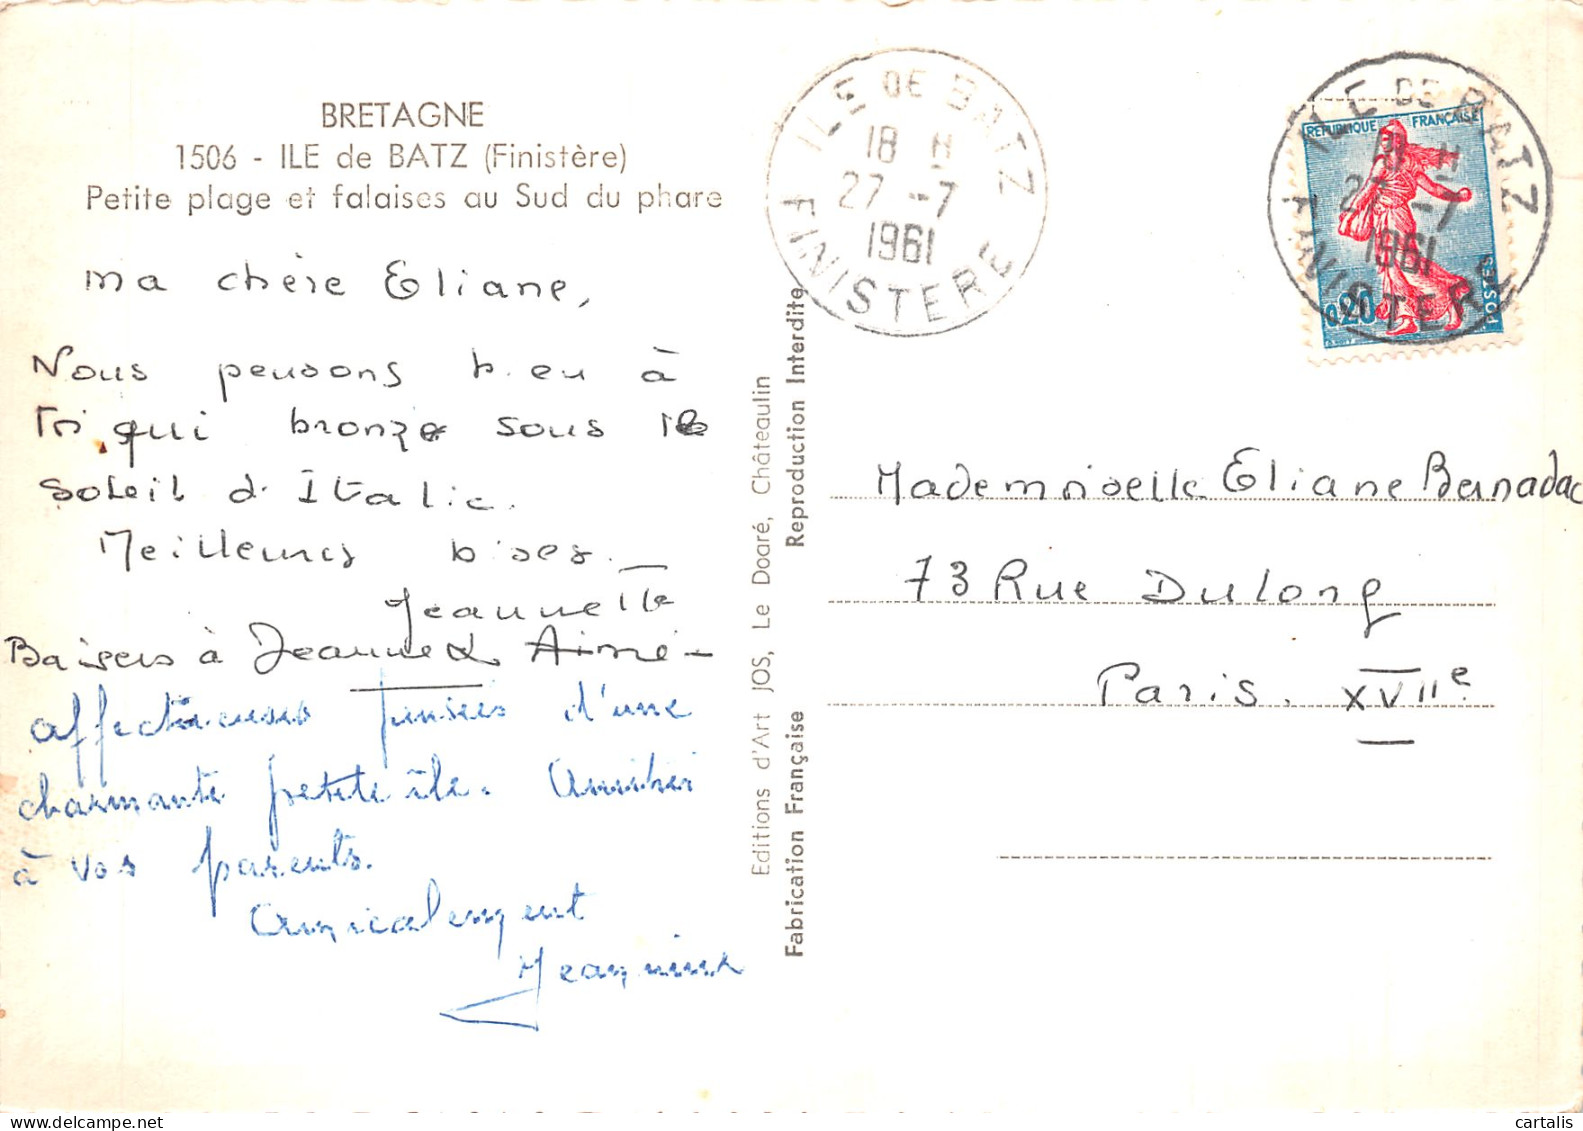 BRETAGNE
1506 - ILE de BATZ (Finistère)
Petite plage et falaises au Sud du phare
Ma chère Eliane,
Nous pensons bien à
Toi qui bronze sous le
soleil d'Italie.
Meilleures bises.
Jeannette
Baisers à Jeanne & Aimé
affectueuses pensées d'une
charmante petite île. Amitiés
à vos parents.
Amicalement
Jeannine
Editions d'Art JOS, Le Doaré, Châteaulin
Fabrication Française Reproduction Interdite
ILE DE BATZ
18 H
27 -7
1961
FINISTERE
REPUBLIQUE FRANÇAISE
0,20
POSTES
ILE DE BATZ
18 H
27 -7
1961
FINISTERE
Mademoiselle Eliane Bernadac
73 Rue Dulong
Paris. XVIIe
cartalis